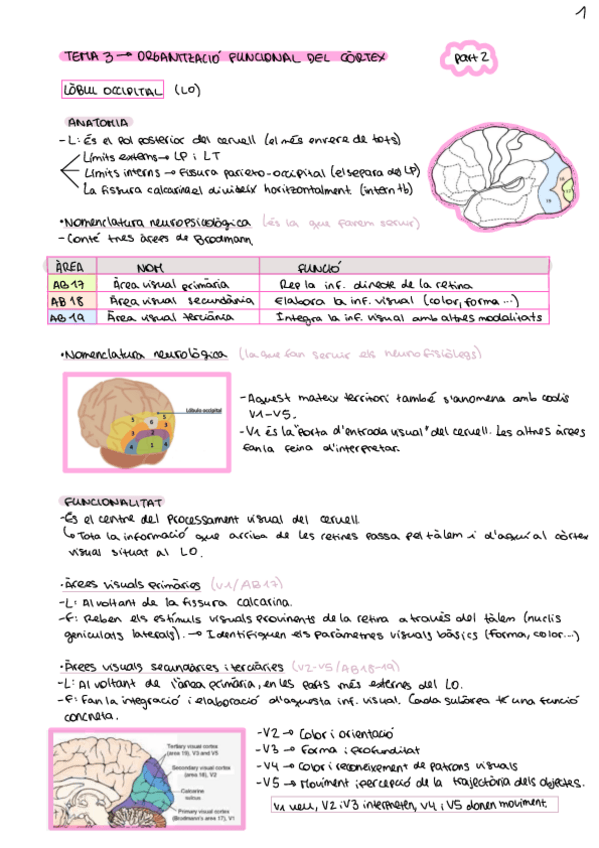 1
TEMA 3 → ORGANITZACIÓ FUNCIONAL DEL CÒRTEX
part 2
LÒBUL OCCIPITAL (LO)
ANATOMIA
- L: És el pol posterior del cervell (el més enrere de tots)
Límits externs → LP i LT
Límits interns → Fisura parieto-occipital (el separa del LP)
La fissura calcarina el divideix horitzontalment (intern tb)
• Nomenclatura neuropsicològica (és la que farem servir)
- Conté tres àrees de Brodmann.
ÀREA NOM FUNCIÓ
AB 17 Àrea visual primària Rep la inf. directe de la retina
AB 18 Àrea visual secundària Elabora la inf. visual (color, forma...)
AB 19 Àrea visual terciària Integra la inf. visual amb altres modalitats
• Nomenclatura neurològica (la que fan servir els neurofisiòlegs)
Lóbulo occipital
- Aquest mateix territori també s'anomena amb codis
V1-V5.
- V1 és la "porta d'entrada visual" del cervell. Les altres àrees
fan la feina d'interpretar.
FUNCIONALITAT
- És el centre del processament visual del cervell
↳ Tota la informació que arriba de les retines passa pel tàlem i d'aquí al còrtex
visual situat al LO.
• Àrees visuals primàries (V1/AB17)
- L: Al voltant de la fissura calcarina.
- F: Reben els estímuls visuals provinents de la retina a través del tàlem (nuclis
geniculats laterals). → Identifiquen els paràmetres visuals bàsics (forma, color...)
• Àrees visuals secundàries i terciàries (V2-V5/AB18-19)
- L: Al voltant de l'àrea primària, en les parts més externes del LO.
- F: Fan la integració i elaboració d'aquesta inf. visual. Cada subàrea té una funció
concreta.
Tertiary visual cortex
(area 19), V3 and V5
Secondary visual cortex
(area 18), V2
Calcarine
sulcus
Primary visual cortex
(Brodmann's area 17), V1
- V2 → Color i orientació
- V3 → Forma i profunditat
- V4 → Color i reconeixement de patrons visuals
- V5 → Moviment i percepció de la trajectòria dels objectes.
V1 veu, V2 i V3 interpreten, V4 i V5 donen moviment.